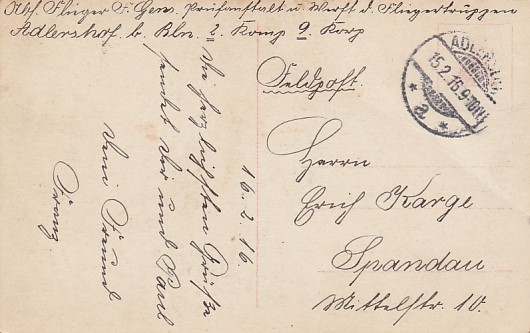 Abs. Flieger F. Gens. Prüfanstalt u Werft d. Fliegertruppen
Adlershof b. Bln. 2. Komp 9. Korp
Feldpost.
ADLERSHOF
15.2.16.9-10
* a *
Herrn
Erich Karge
Spandau
Mittelstr. 10.
16. 2. 16.
Die herzlichsten Grüße
sendet dir und Paul
Dein Freund
Franz.